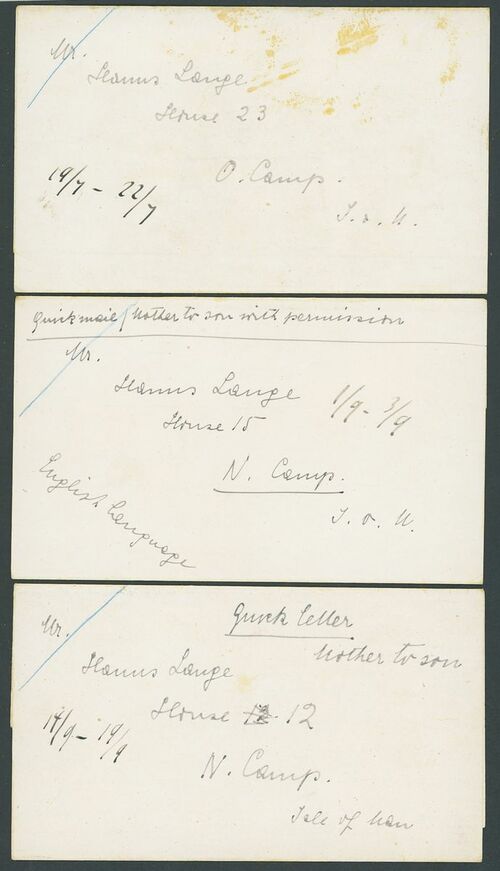 Mr.
Hanns Lange
House 23
O. Camp.
19/7 - 22/7
I. o. M.
Quickmail / Mother to son with permission
Mr.
Hanns Lange
1/9 - 3/9
House 15
N. Camp.
English Language
I. o. M.
Quick letter
Mr.
Mother to son
Hanns Lange
House 12
14/9 - 19/9
N. Camp.
Isle of Man